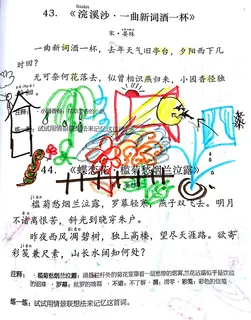 huàn
43. 《浣溪沙·一曲新词酒一杯》
宋·晏殊
一曲新词酒一杯，去年天气旧亭台，夕阳西下几
时回？
无可奈何花落去，似曾相识燕归来，小园香径独
注释：·小园香径：
练一练：试试用情景联想法来记忆这首词。
44. 《蝶恋花·槛菊愁烟兰泣露》
槛菊愁烟兰泣露，罗幕轻寒，燕子双飞去。明月
不谙离恨苦，斜光到晓穿朱户。
昨夜西风凋碧树，独上高楼，望尽天涯路。欲寄
彩笺兼尺素，山长水阔知何处？
注释：·槛菊愁烟兰泣露：
的眼泪 ·罗幕：丝罗的帷幕 ·不谙：不了解 ·凋：凋零 ·彩笺：彩色的信笺
练一练：试试用情景联想法来记忆这首词。